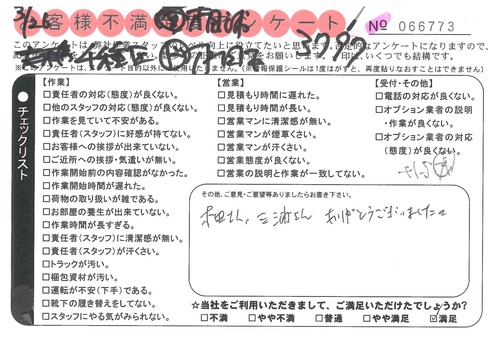 3/26
お客様不満足アンケート
No 066773
チェックリスト
【作業】
□責任者の対応(態度)が良くない。
□他のスタッフの対応(態度)が良くない。
□作業を見ていて不安がある。
□責任者(スタッフ)に好感が持てない。
□お客様への挨拶が出来ていない。
□ご近所への挨拶・気遣いが無い。
□作業開始前の内容確認がなかった。
□作業開始時間が遅れた。
□荷物の取り扱いが雑である。
□お部屋の養生が出来ていない。
□作業時間が長すぎる。
□責任者(スタッフ)に清潔感が無い。
□責任者(スタッフ)が汗くさい。
□トラックが汚い。
□梱包資材が汚い。
□運転が不安(下手)である。
□靴下の履き替えをしてない。
□スタッフにやる気が感じられない。
【営業】
□見積もり時間に遅れた。
□見積もり時間が長い。
□営業マンに清潔感が無い。
□営業マンが煙草くさい。
□営業マンが汗くさい。
□営業態度が良くない。
□営業の説明と作業が一致してない。
【受付・その他】
□電話の対応が良くない。
□オプション業者の説明
・作業が良くない。
□オプション業者の対応
(態度)が良くない。
その他、ご意見・ご要望等ありましたらお書き下さい。
三浦さん ありがとうございました。
☆当社をご利用いただきまして、ご満足いただけたでしょうか?
□不満 □やや不満 □普通 □やや満足 ☑満足